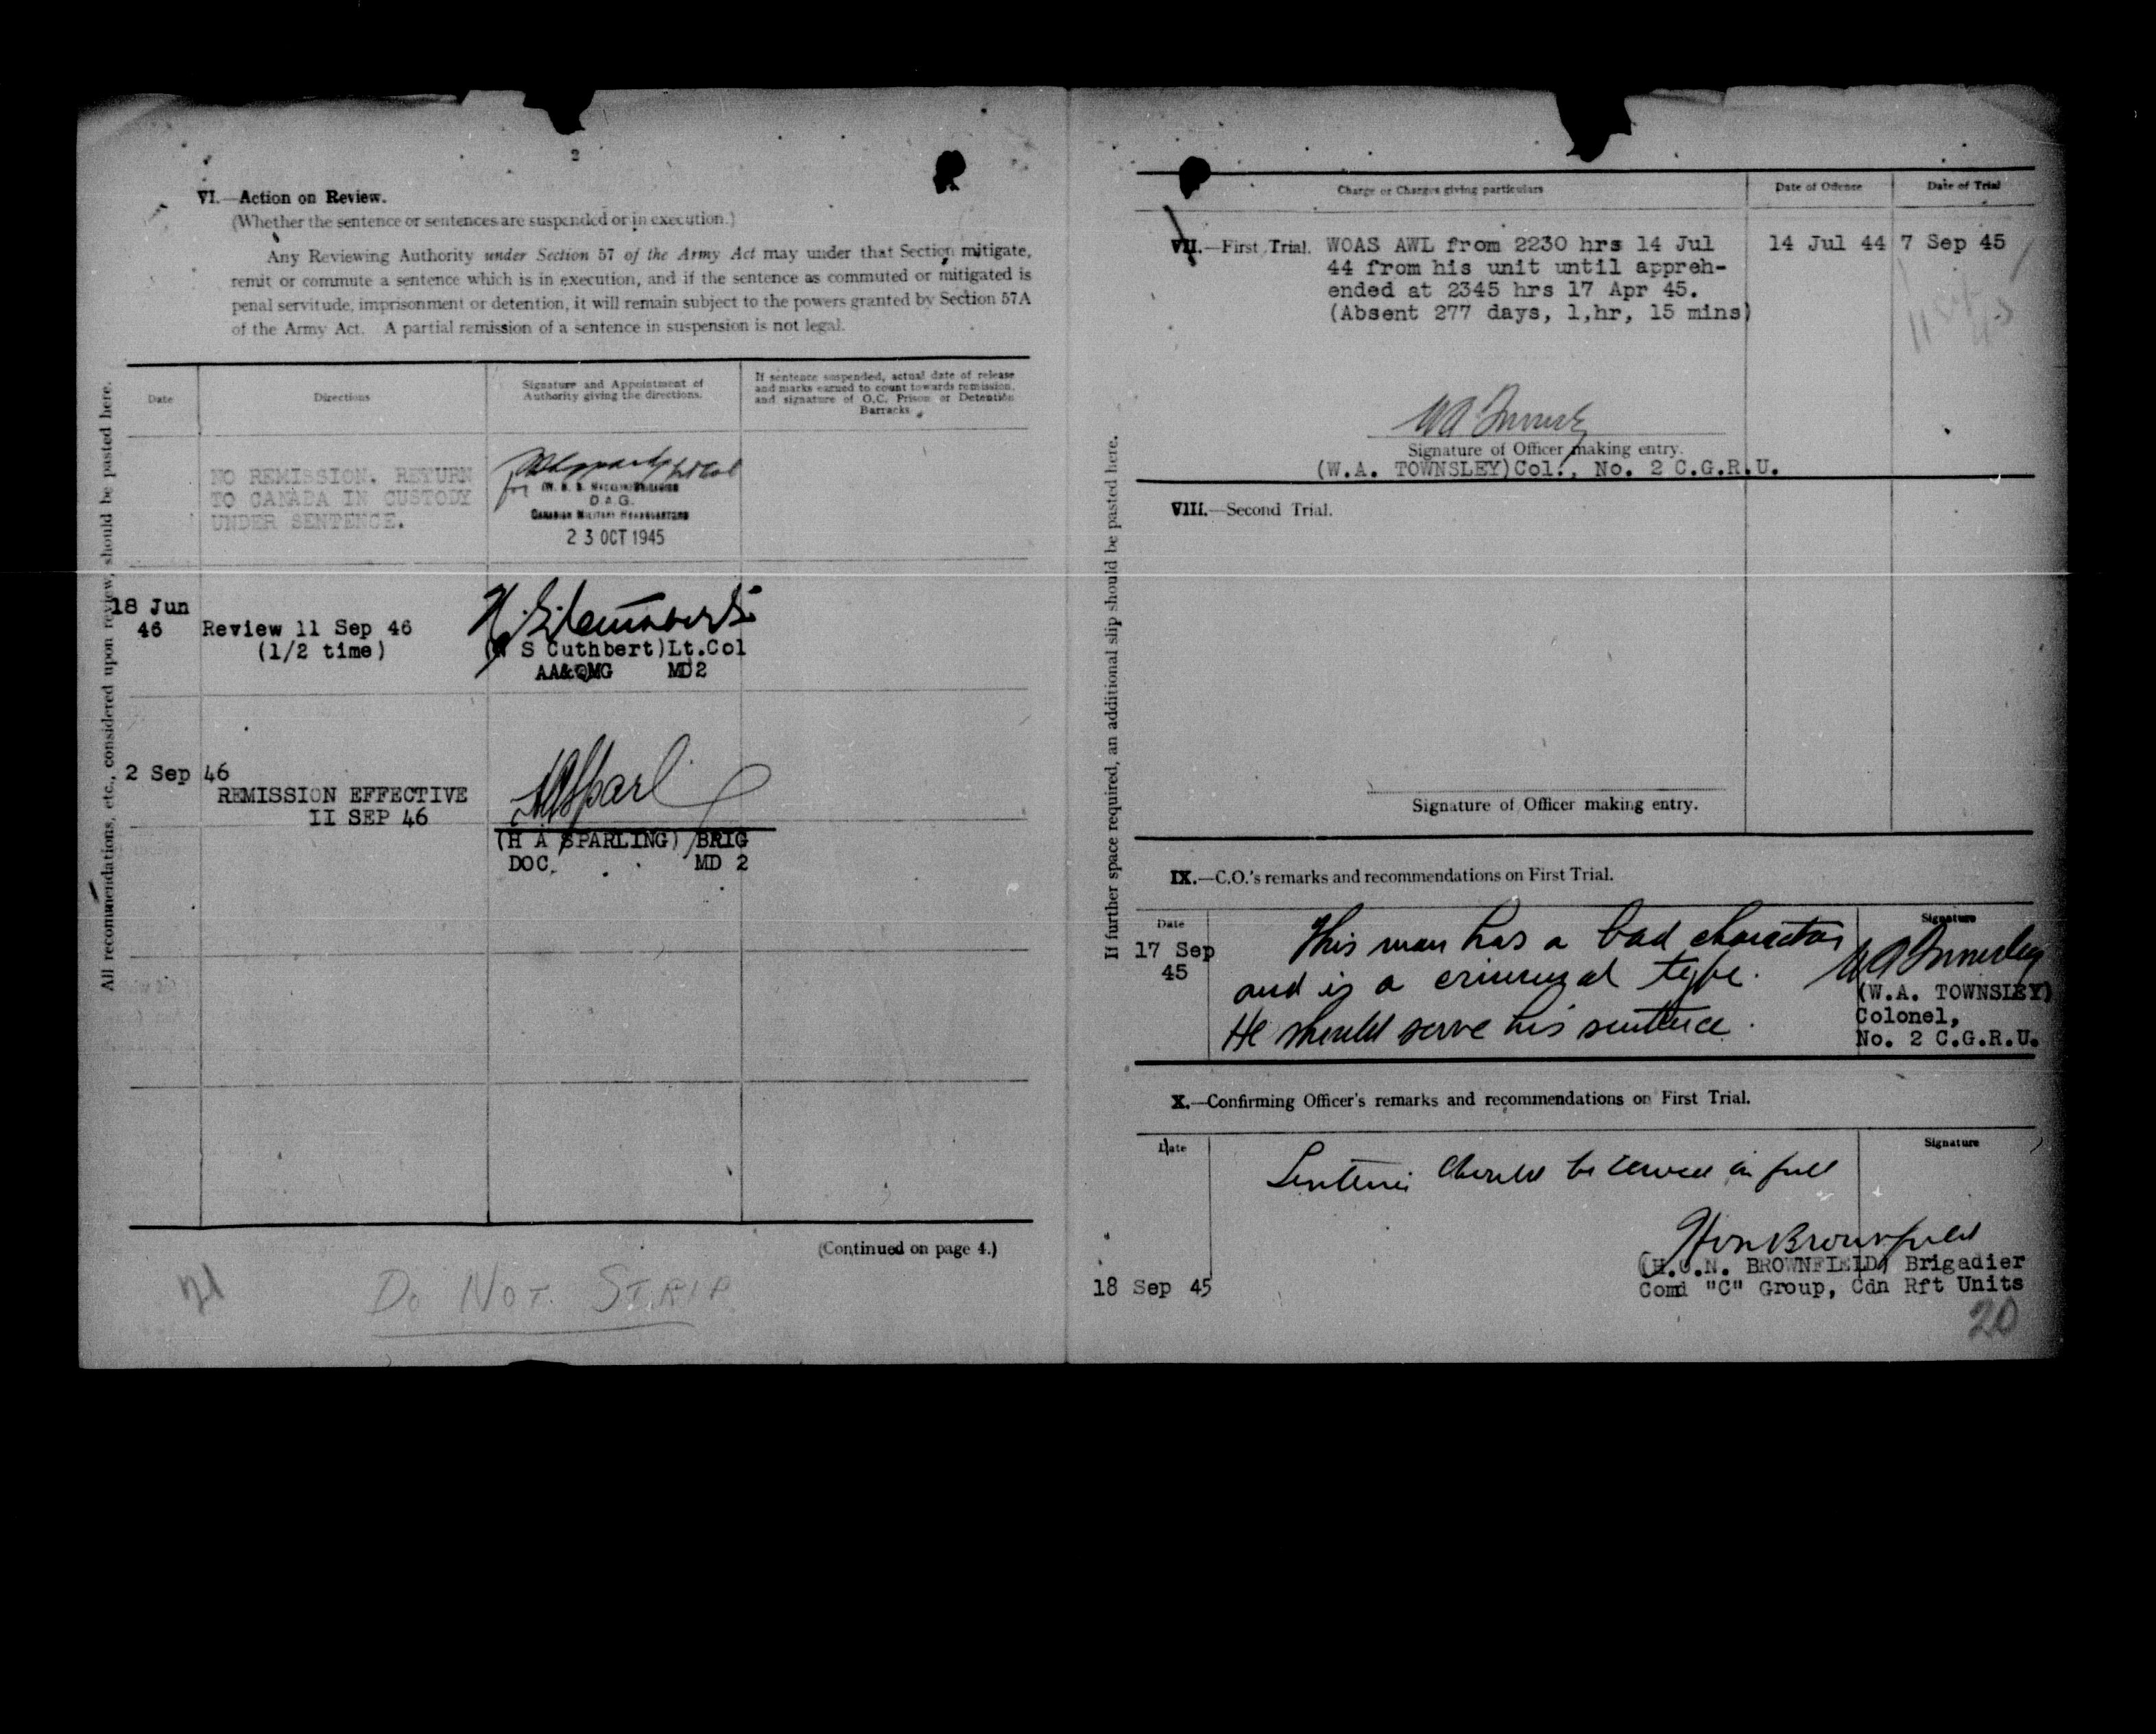 2
VI.—Action on Review.
(Whether the sentence or sentences are suspended or in execution.)
Any Reviewing Authority under Section 57 of the Army Act may under that Section mitigate,
remit or commute a sentence which is in execution, and if the sentence as commuted or mitigated is
penal servitude, imprisonment or detention, it will remain subject to the powers granted by Section 57A
of the Army Act. A partial remission of a sentence in suspension is not legal.
All recommendations, etc., considered upon review, should be pasted here.
Date
Directions
Signature and Appointment of
Authority giving the directions.
If sentence suspended, actual date of release
and marks earned to count towards remission,
and signature of O.C. Prison or Detention
Barracks
NO REMISSION. RETURN
TO CANADA IN CUSTODY
UNDER SENTENCE.
Lt Col
for
D.A.G.
CANADIAN MILITARY HEADQUARTERS
23 OCT 1945
18 Jun
46
Review 11 Sep 46
(1/2 time)
S Cuthbert)Lt.Col
AA&QMG MD2
2 Sep 46
REMISSION EFFECTIVE
II SEP 46
(H A SPARLING) BRIG
DOC. MD 2
(Continued on page 4.)
21
DO NOT STRIP
Charge or Charges giving particulars
Date of Offence
Date of Trial
VII.—First Trial.
WOAS AWL from 2230 hrs 14 Jul
44 from his unit until appreh-
ended at 2345 hrs 17 Apr 45.
(Absent 277 days, 1,hr, 15 mins)
14 Jul 44
7 Sep 45
Signature of Officer making entry.
(W.A. TOWNSLEY)Col., No. 2 C.G.R.U.
If further space required, an additional slip should be pasted here.
VIII.—Second Trial.
Signature of Officer making entry.
IX.—C.O.'s remarks and recommendations on First Trial.
Date
Signature
17 Sep
45
This man has a bad character
and is a criminal type.
He should serve his sentence.
(W.A. TOWNSLEY)
Colonel,
No. 2 C.G.R.U.
X.—Confirming Officer's remarks and recommendations on First Trial.
Date
Signature
Sentence should be served in full
18 Sep 45
(H.O.N. BROWNFIELD) Brigadier
Comd "C" Group, Cdn Rft Units
20